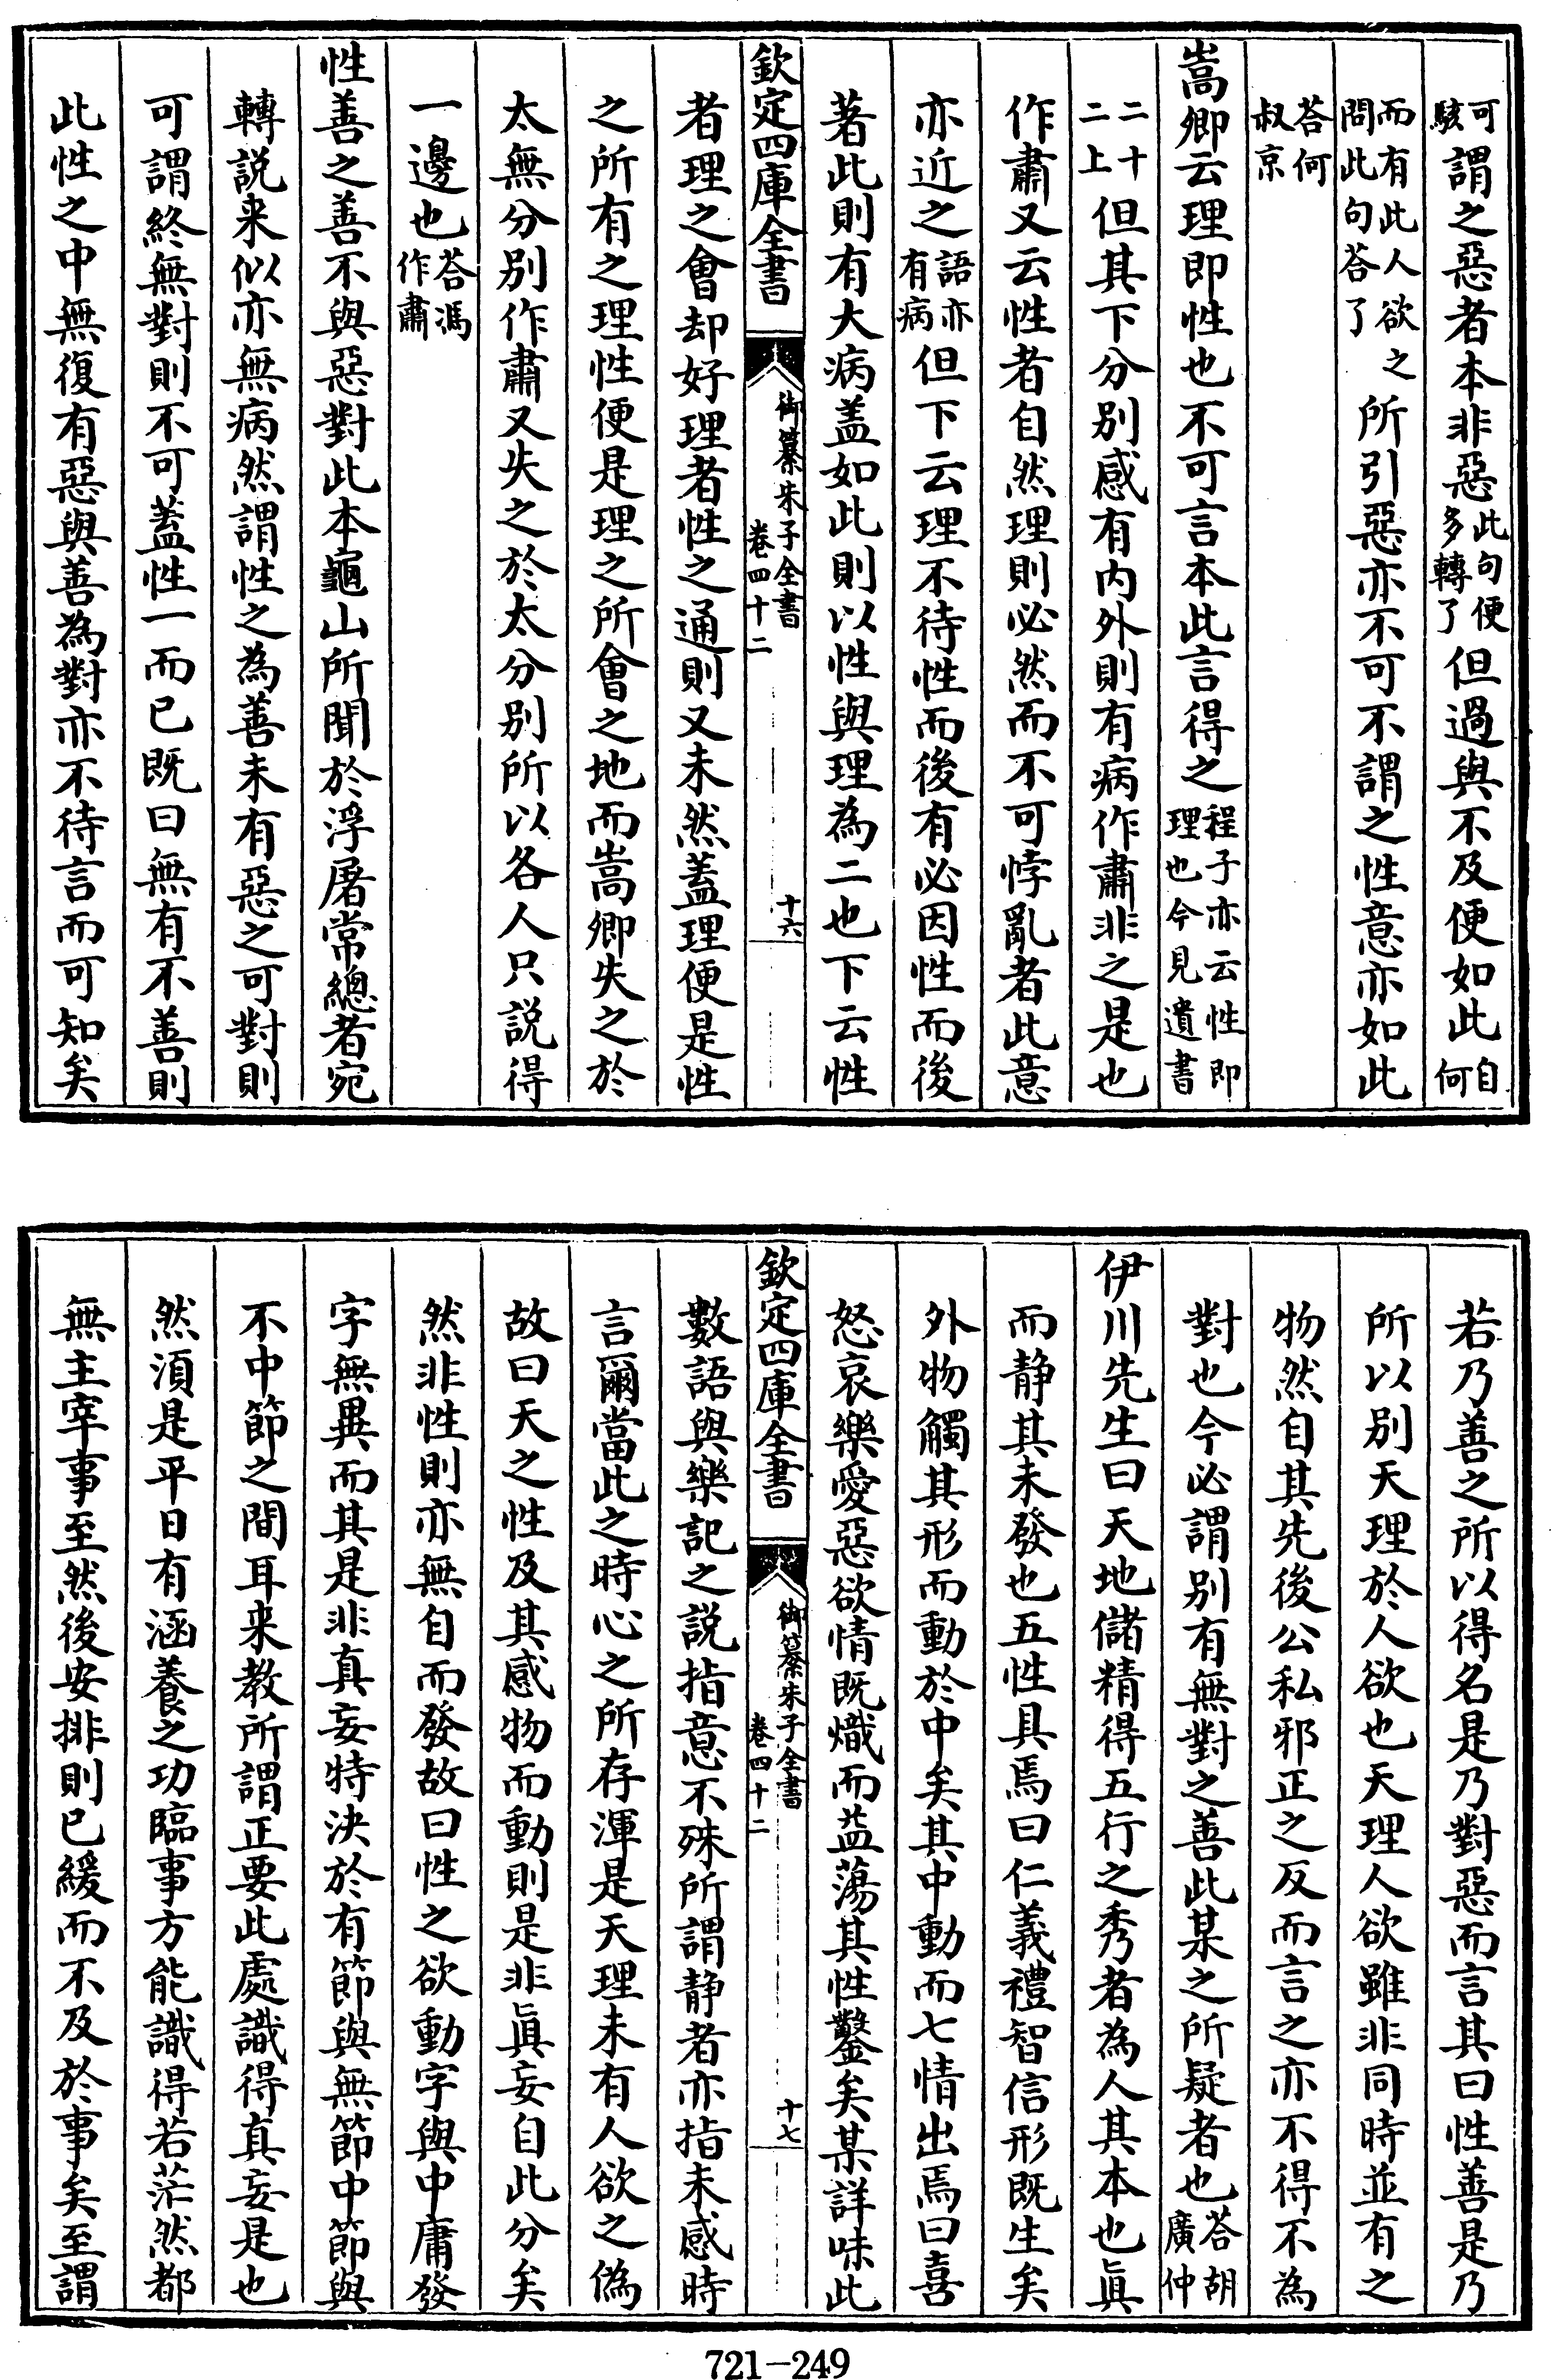 可駭謂之惡者本非惡此句便多轉了但過與不及便如此自何
而有此人欲之問此句荅了所引惡亦不可不謂之性意亦如此
荅何叔京
嵩卿云理即性也不可言本此言得之程子亦云性即理也今見遺書
二十二上但其下分别感有内外則有病作肅非之是也
作肅又云性者自然理則必然而不可悖亂者此意
亦近之語亦有病但下云理不待性而後有必因性而後
著此則有大病盖如此則以性與理為二也下云性
欽定四庫全書 御纂朱子全書 卷四十二 十六
者理之會却好理者性之通則又未然蓋理便是性
之所有之理性便是理之所會之地而嵩卿失之於
太無分别作肅又失之於太分别所以各人只説得
一邊也荅馮作肅
性善之善不與惡對此本龜山所聞於浮屠常總者宛
轉説来似亦無病然謂性之為善未有惡之可對則
可謂終無對則不可蓋性一而已既曰無有不善則
此性之中無復有惡與善為對亦不待言而可知矣
若乃善之所以得名是乃對惡而言其曰性善是乃
所以别天理於人欲也天理人欲雖非同時並有之
物然自其先後公私邪正之反而言之亦不得不為
對也今必謂别有無對之善此某之所疑者也荅胡廣仲
伊川先生曰天地儲精得五行之秀者為人其本也眞
而静其未發也五性具焉曰仁義禮智信形既生矣
外物觸其形而動於中矣其中動而七情出焉曰喜
怒哀樂愛惡欲情既熾而益蕩其性鑿矣某詳味此
欽定四庫全書 御纂朱子全書 卷四十二 十七
數語與樂記之説指意不殊所謂静者亦指未感時
言爾當此之時心之所存渾是天理未有人欲之偽
故曰天之性及其感物而動則是非眞妄自此分矣
然非性則亦無自而發故曰性之欲動字與中庸發
字無異而其是非真妄特決於有節與無節中節與
不中節之間耳来教所謂正要此處識得真妄是也
然須是平日有涵養之功臨事方能識得若茫然都
無主宰事至然後安排則已緩而不及於事矣至謂
721-249